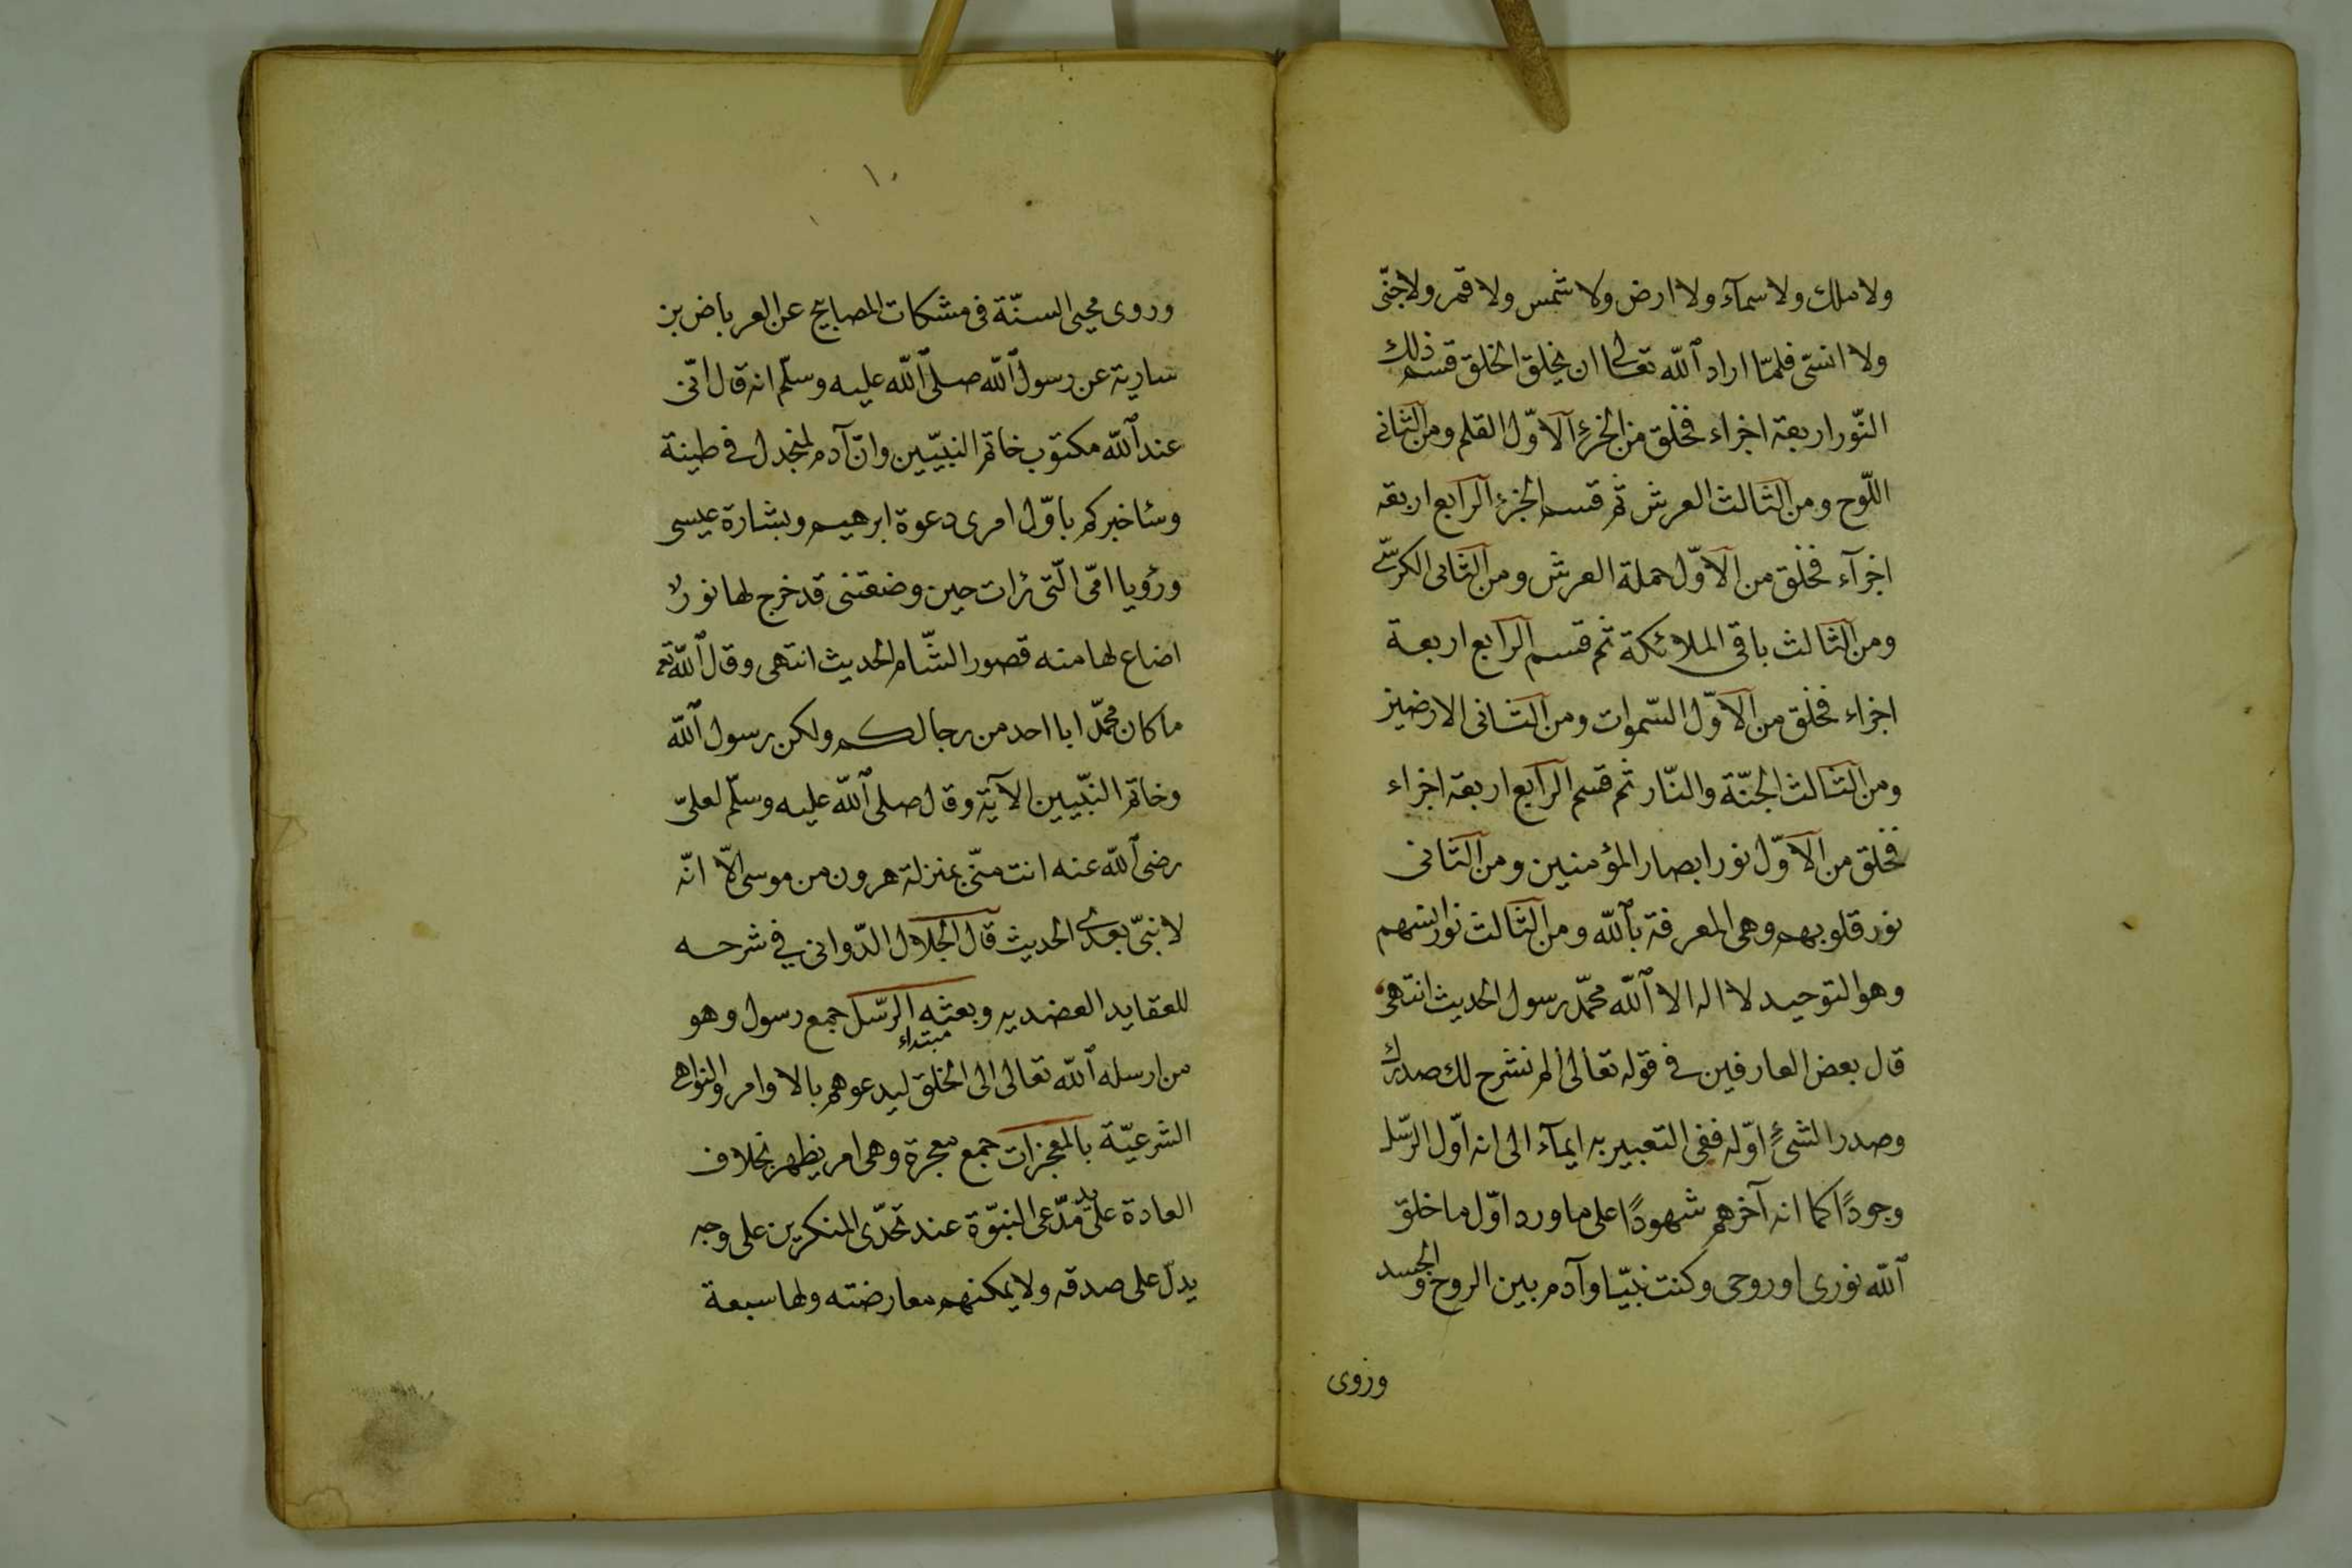 ولا ملك ولا سمآء ولا ارض ولا شمس ولا قمر ولا جنّى
ولا انسّى فلمّا اراد اللّه تعالى ان يخلق الخلق قسم ذلك
النّور اربعة اجزاء فخلق من الجزء الاوّل القلم ومن الثانى
اللّوح ومن الثالث العرش ثم قسم الجزء الرابع اربعة
اجزآء فخلق من الاوّل حملة العرش ومن الثانى الكرسّى
ومن الثالث باقى الملائكة ثم قسم الرابع اربعة
اجزاء فخلق من الاوّل السّموات ومن الثانى الارضين
ومن الثالث الجنّة والنّار ثم قسم الرابع اربعة اجزاء
فخلق من الاوّل نور ابصار المؤمنين ومن الثانى
نور قلوبهم وهى المعرفة باللّه ومن الثالث نور انسهم
وهو التوحيد لا اله الا اللّه محمّد رسول الحديث انتهى
قال بعض العارفين فى قوله تعالى الم نشرح لك صدرك
وصدر الشئ اوّله ففى التعبير به ايمآء الى انه اوّل الرّسل
وجودًا كما انه آخرهم شهودًا على ما ورد اوّل ما خلق
اللّه نورى او روحى وكنت نبيّا وآدم بين الروح والجسد
وروى
١٠
وروى محيى السنّة فى مشكات المصابيح عن العرباض بن
سارية عن رسول اللّه صلى اللّه عليه وسلّم انه قال انّى
عند اللّه مكتوب خاتم النبيّين وانّ آدم لمنجدل فى طينة
وسأخبركم باوّل امرى دعوة ابرهيم وبشارة عيسى
ورؤيا امّى الّتى رأت حين وضعتنى قد خرج لها نور
اضاع لها منه قصور الشّام الحديث انتهى وقال اللّه تع
ما كان محمّد ابا احد من رجالكم ولكن رسول اللّه
وخاتم النبّيين الآية وقال صلى اللّه عليه وسلّم لعلىّ
رضى اللّه عنه انت منّى بمنزلة هرون من موسى الّا انّه
لا نبىّ بعدى الحديث قال الجلال الدّوانى فى شرحه
للعقايد العضديه وبعثه الرّسل جمع رسول وهو
مبتداء
من ارسله اللّه تعالى الى الخلق ليدعوهم بالاوامر والنواهى
الشرعيّة بالمعجزات جمع معجزة وهى امر يظهر بخلاف
العادة على يد مدّعى النبّوة عند تحدّى المنكرين على وجه
يدلّ على صدقه ولا يمكنهم معارضته ولها سبعة